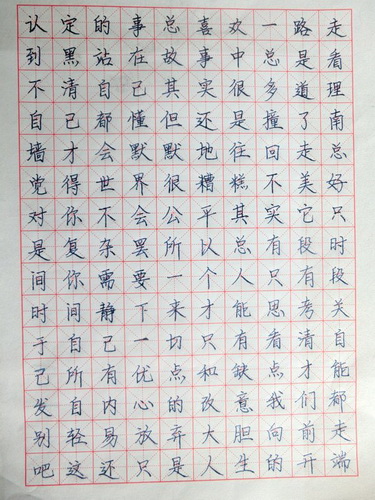 认定的事总喜欢一路走
到黑站在故事中总是看
不清自己其实很多道理
自己都懂但还是撞了南
墙才会默默地往回走总
觉得世界很糟糕不美好
对你不会公平其实它只
是复杂罢所以总有段时
间你需要一个人只有段
时间静下来才能思考关
于自己一切只有看清自
己所有优点和缺点才能
发自内心的改意我们都
别轻易放弃大胆向前走
吧这还只是人生的开端